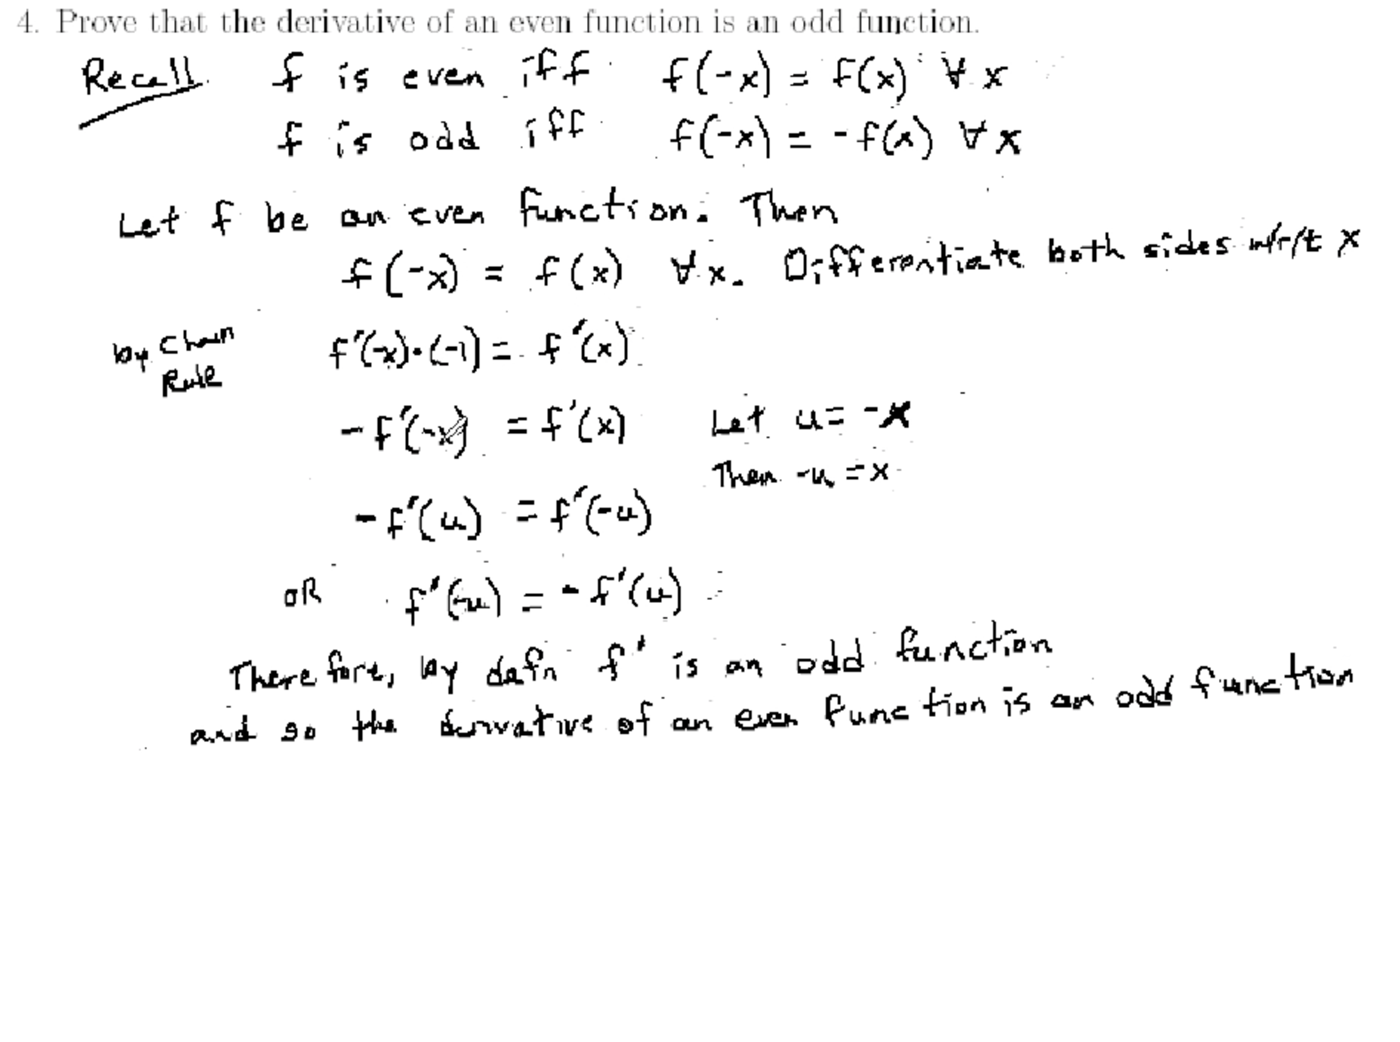 4. Prove that the derivative of an even function is an odd function.
Recall. f is even iff f(-x) = f(x) ∀ x
f is odd iff f(-x) = -f(x) ∀ x
Let f be an even function. Then
f(-x) = f(x) ∀x. Differentiate both sides w/r/t x
by Chain Rule f'(-x)·(-1) = f'(x)
-f'(-x) = f'(x) Let u = -x
Then -u = x
-f'(u) = f'(-u)
OR f'(-u) = -f'(u)
Therefore, by defn f' is an odd function
and so the derivative of an even function is an odd function